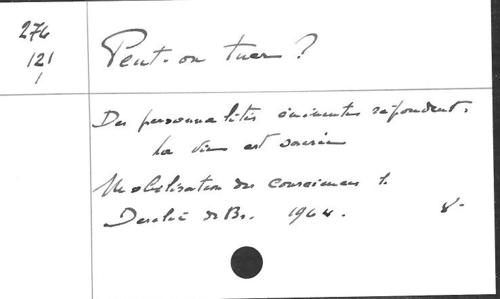 274
121
1
Peut-on tuer ?
Des personnalités éminentes répondent.
La vie est sacrée
Mobilisation des consciences
de Br. 1964. 8-